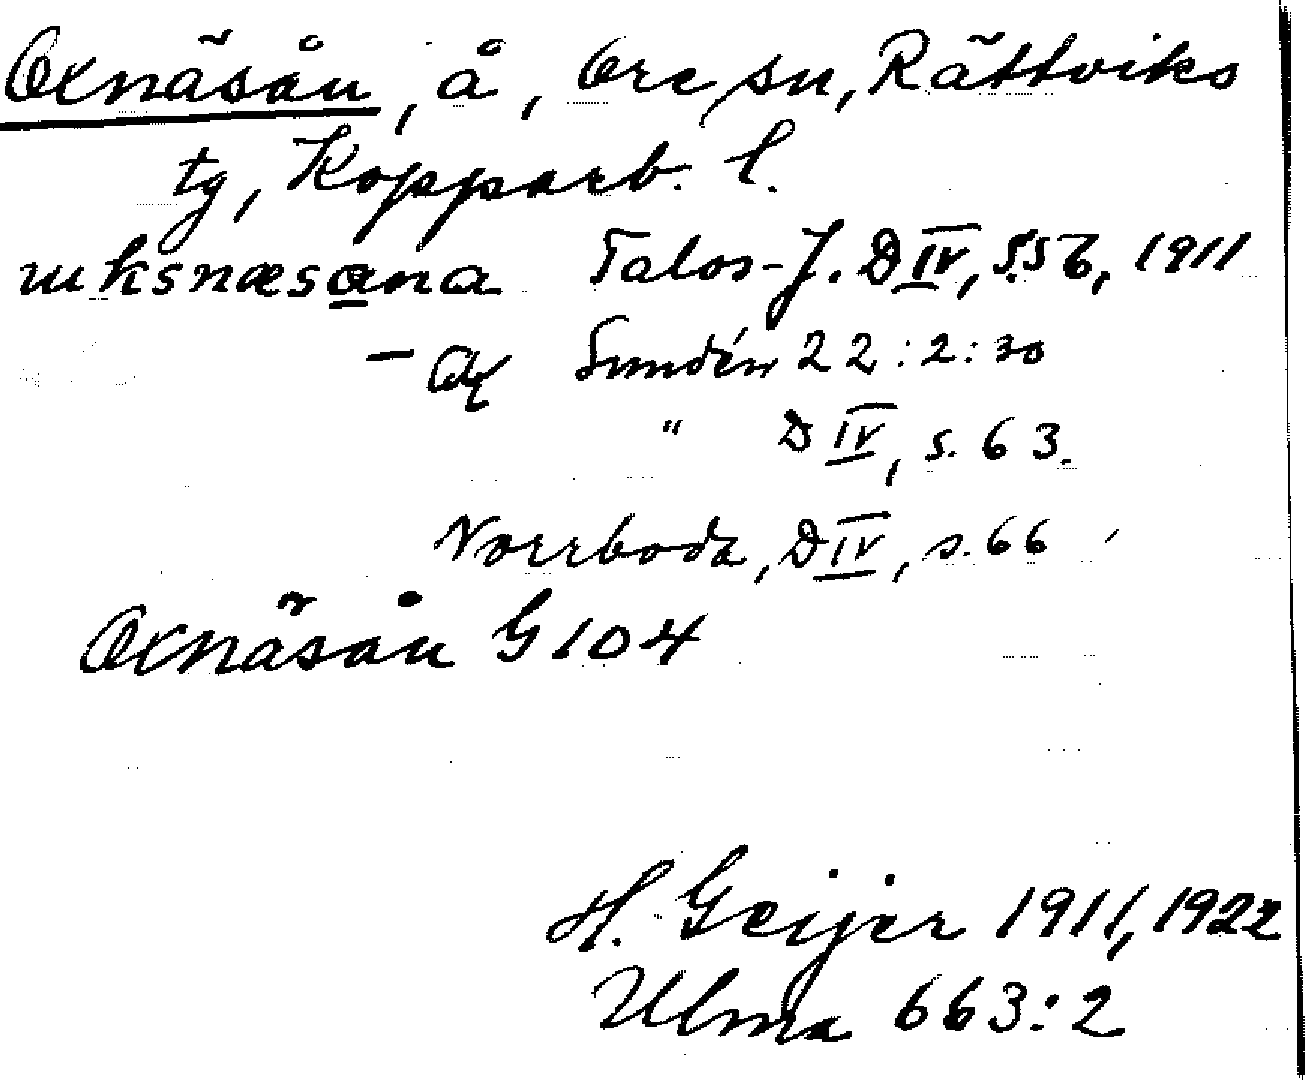 Oxnäsån, å, Ore sn, Rättviks
tg, Kopparb. l.
uksnæsa̲na Talos-J. D IV, s. 56, 1911
— Sundén 22:2:30
" D IV, s. 63.
Norrboda, D IV, s. 66
Oxnäsån G 104
H. Geijer 1911, 1922
Ulma 663:2